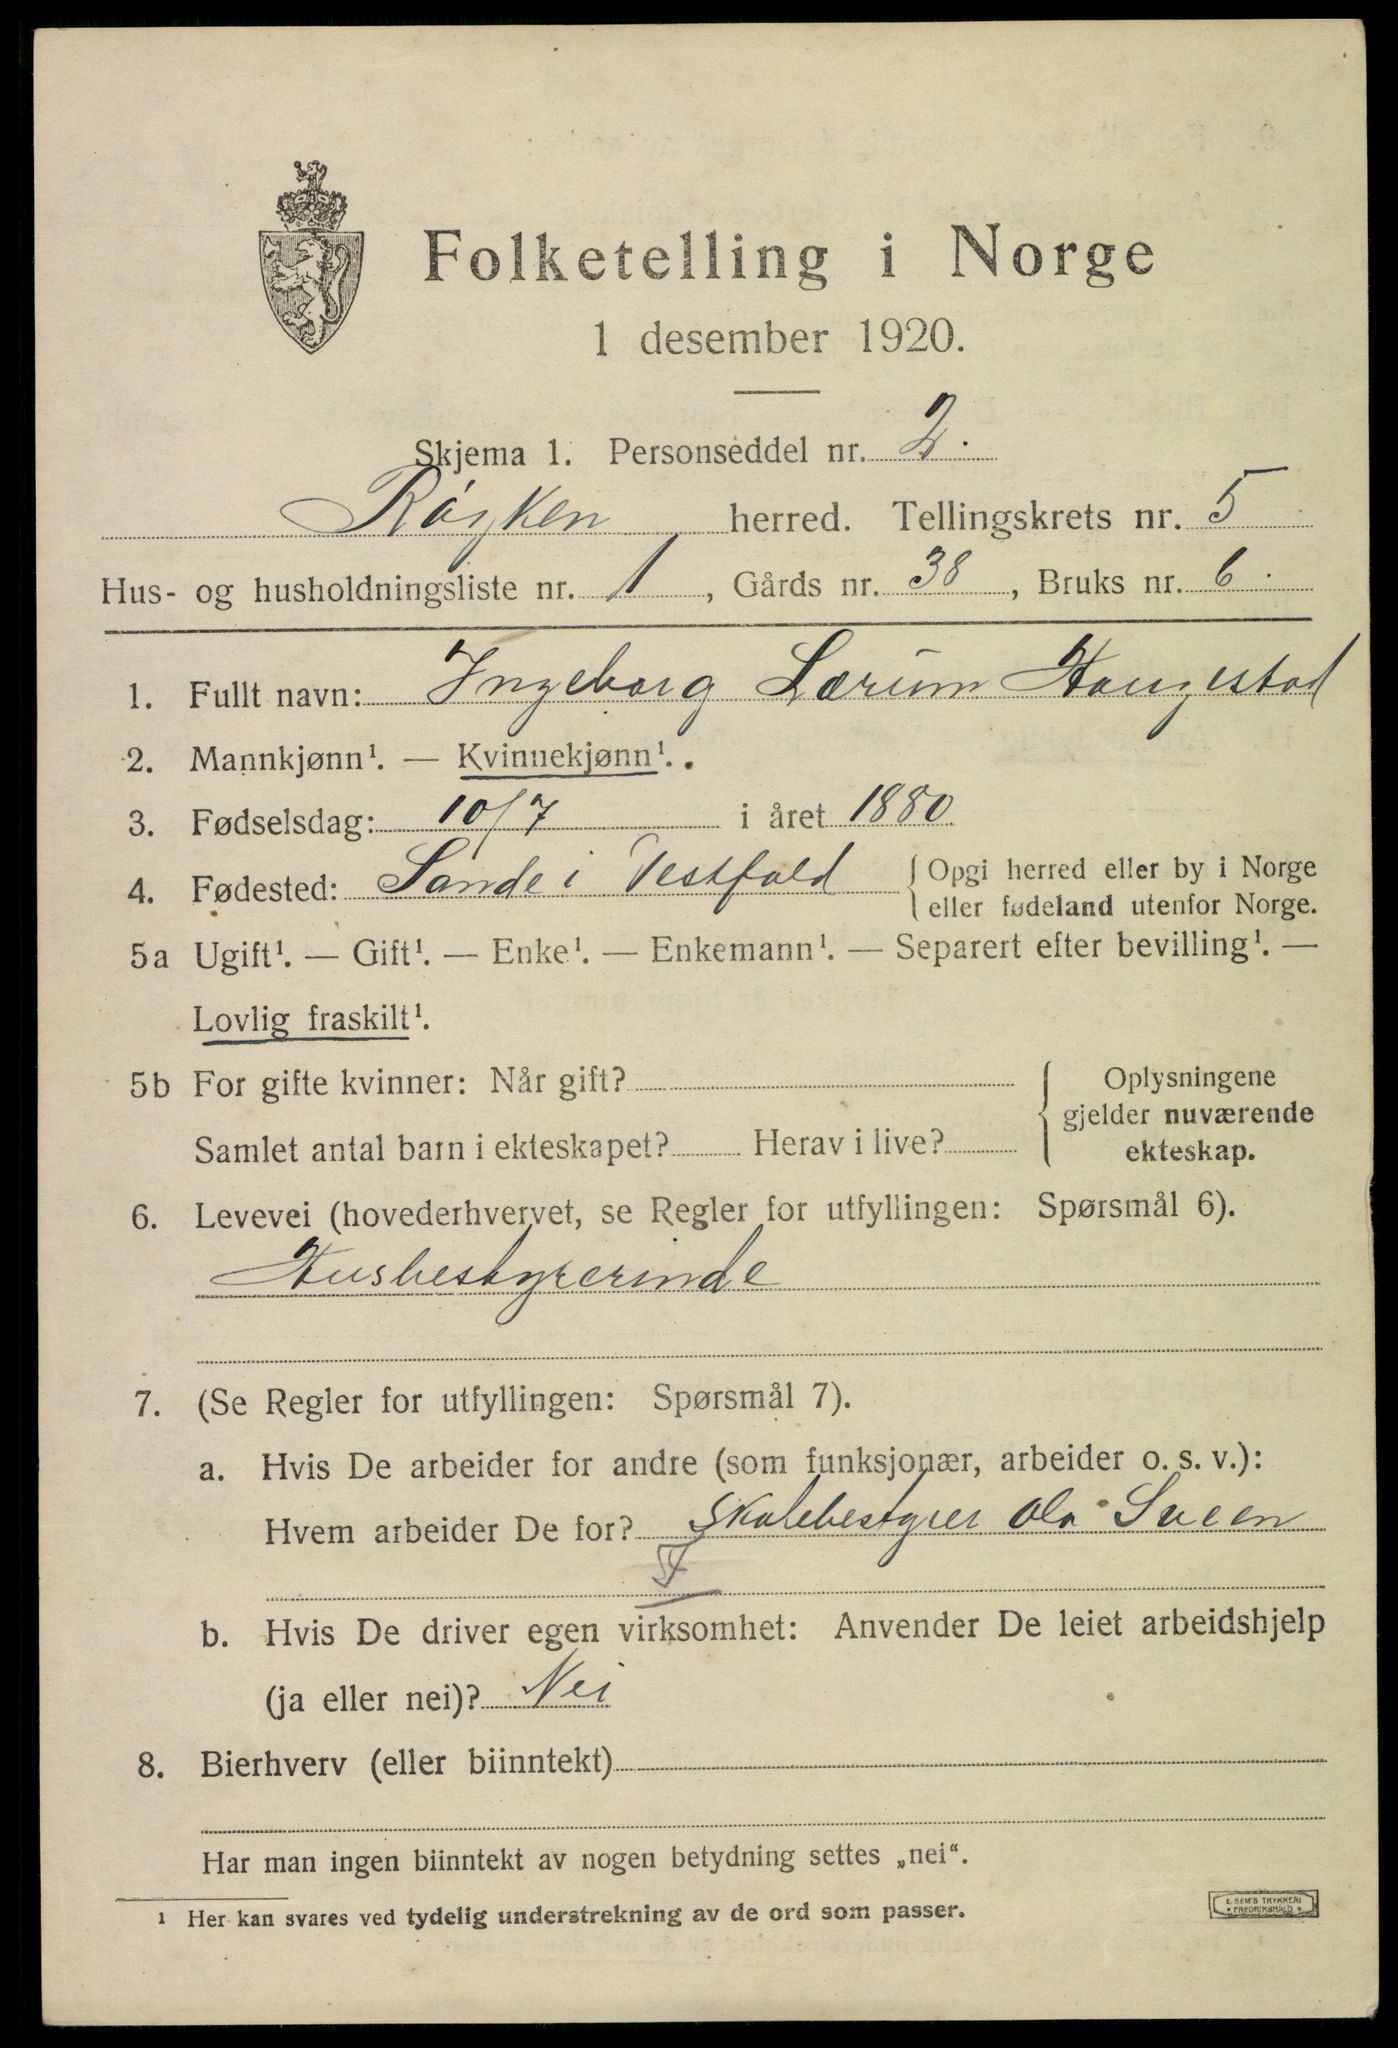 Folketelling i Norge
1 desember 1920.
Skjema 1. Personseddel nr. 2.
Røyken herred. Tellingskrets nr. 5
Hus- og husholdningsliste nr. 1, Gårds nr. 38, Bruks nr. 6.
1. Fullt navn: Ingeborg Lærum Haugestad
2. Mannkjønn¹. — Kvinnekjønn¹.
3. Fødselsdag: 10/7 i året 1880
4. Fødested: Sande i Vestfold { Opgi herred eller by i Norge
eller fødeland utenfor Norge.
5a Ugift¹. — Gift¹. — Enke¹. — Enkemann¹. — Separert efter bevilling¹. —
Lovlig fraskilt¹.
5b For gifte kvinner: Når gift? { Oplysningene
gjelder nuværende
Samlet antal barn i ekteskapet? Herav i live? ekteskap.
6. Levevei (hovederhvervet, se Regler for utfyllingen: Spørsmål 6).
Husbestyrerinde
7. (Se Regler for utfyllingen: Spørsmål 7).
a. Hvis De arbeider for andre (som funksjonær, arbeider o. s. v.):
Hvem arbeider De for? Skolebestyrer Ola Sveen
b. Hvis De driver egen virksomhet: Anvender De leiet arbeidshjelp
(ja eller nei)? Nei
8. Bierhverv (eller biinntekt)
Har man ingen biinntekt av nogen betydning settes „nei“.
¹ Her kan svares ved tydelig understrekning av de ord som passer.
E. SEM'S TRYKKERI
FREDRIKSHALD